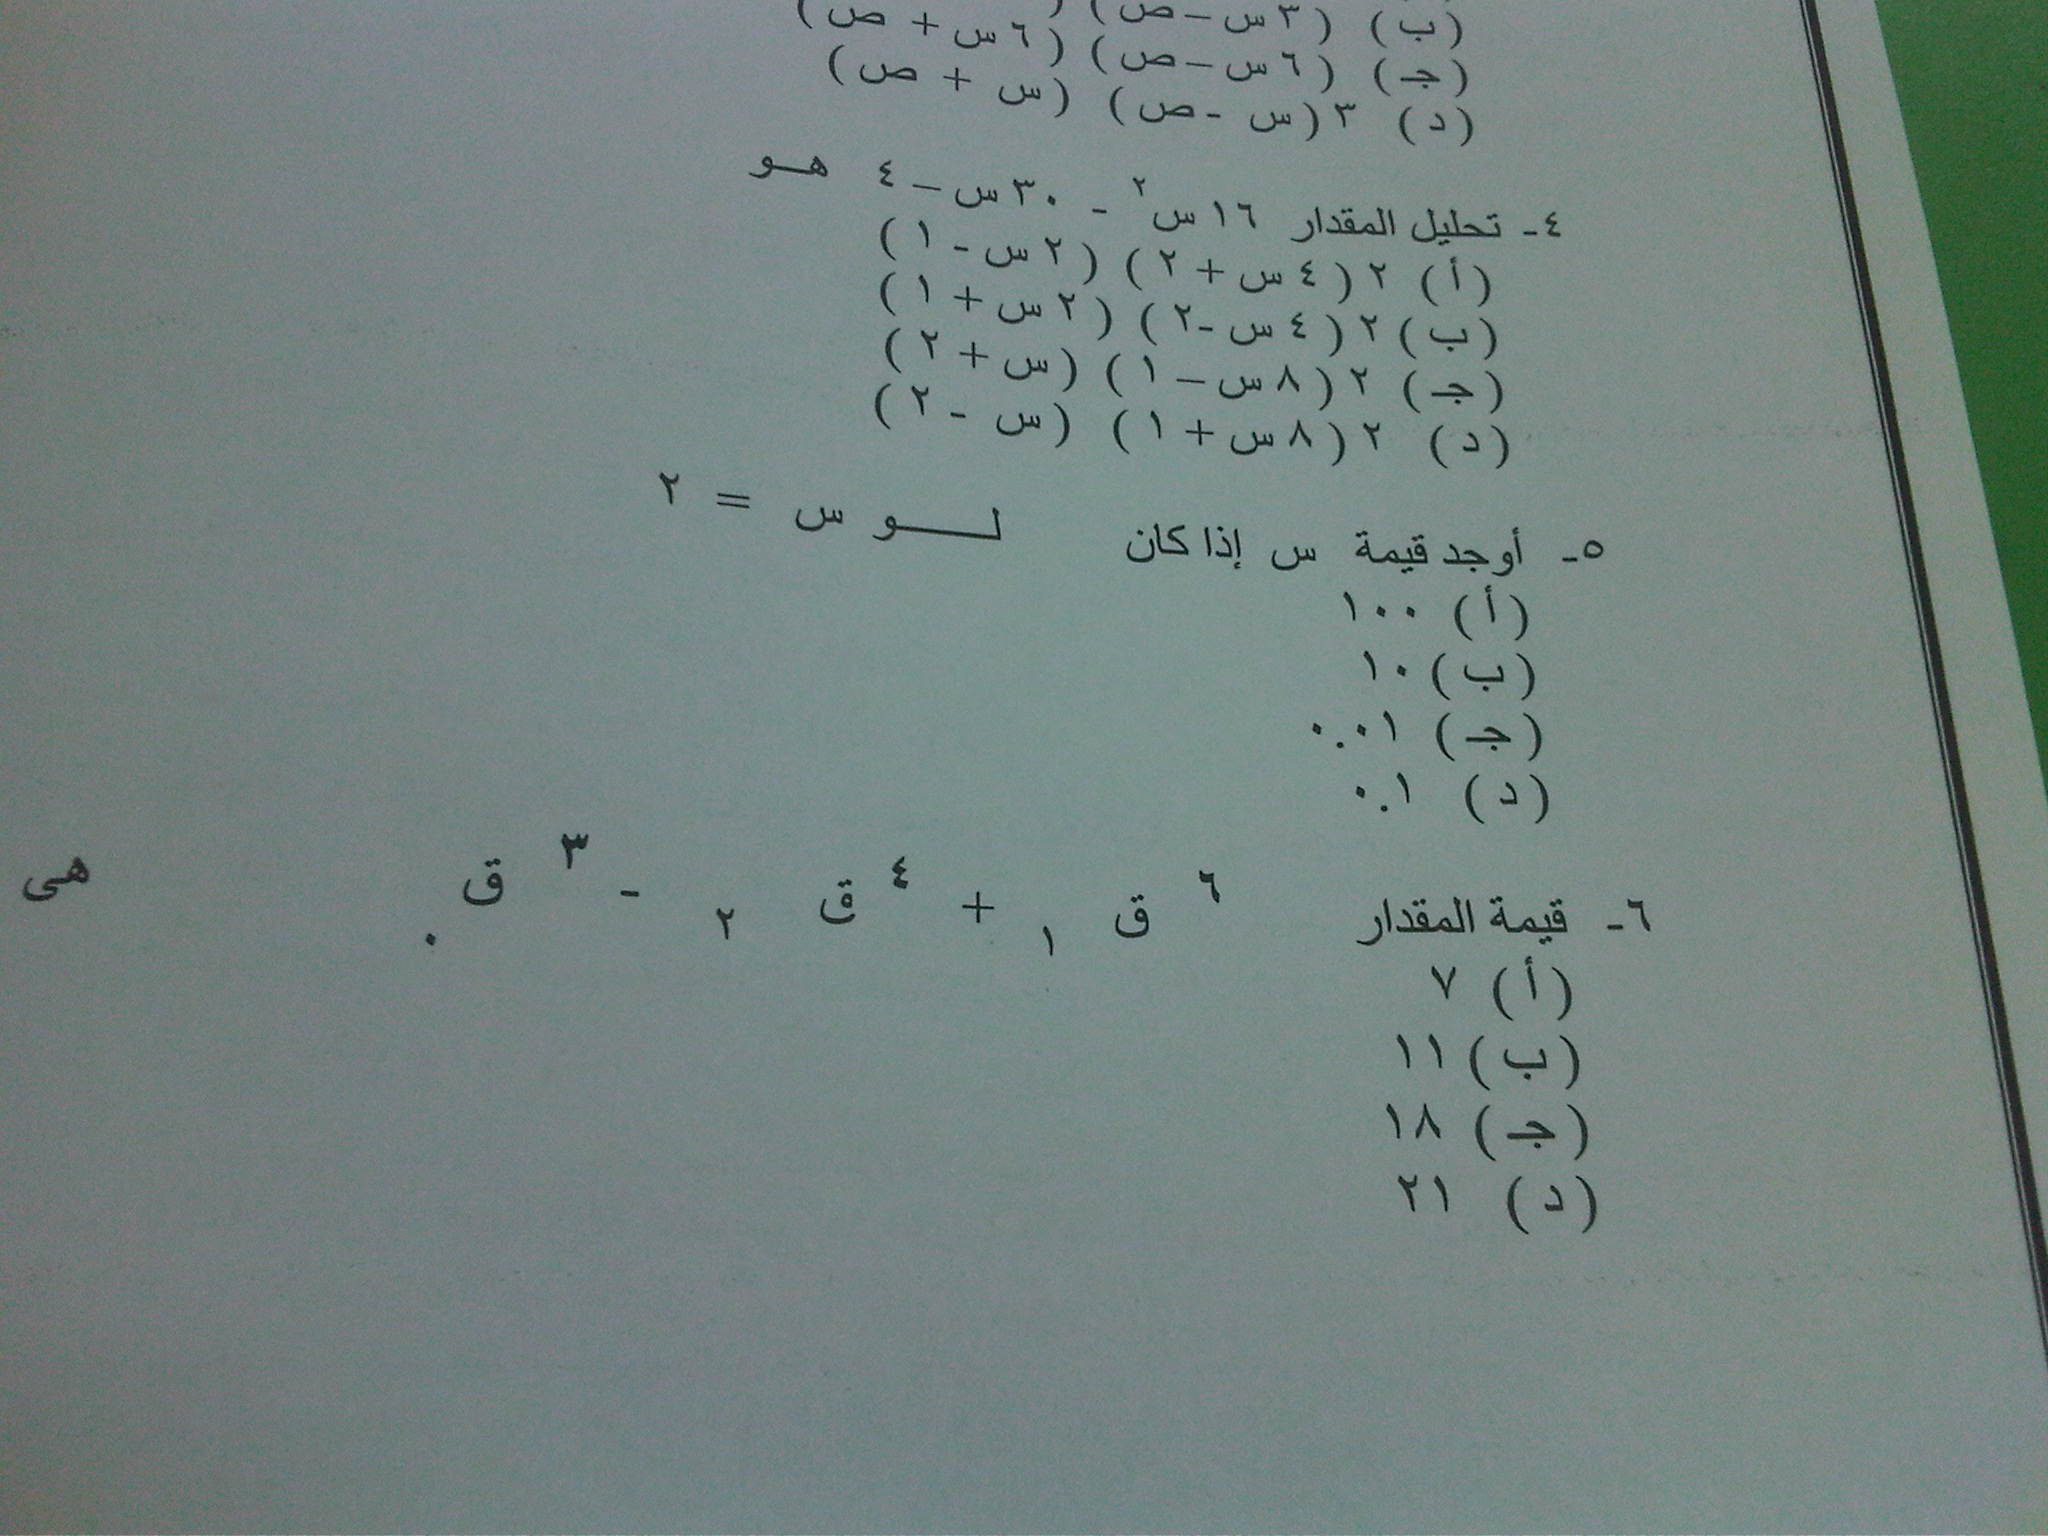 (ب) (٣س–ص) (
(ج) (٦س–ص) (٦س+ ص)
(د) ٣(س -ص) (س + ص)
٤- تحليل المقدار ١٦س٢ - ٣٠س–٤ هو
(أ) ٢(٤س+٢) (٢س-١)
(ب)٢(٤س-٢) (٢س+١)
(ج) ٢(٨س–١) (س+٢)
(د) ٢(٨س+١) (س -٢)
٥- أوجد قيمة س إذا كان لو س = ٢
(أ) ١٠٠
(ب) ١٠
(ج) ٠.٠١
(د) ٠.١
٦- قيمة المقدار ٦ق١ + ٤ق٢ - ٣ق٠ هى
(أ) ٧
(ب) ١١
(ج) ١٨
(د) ٢١